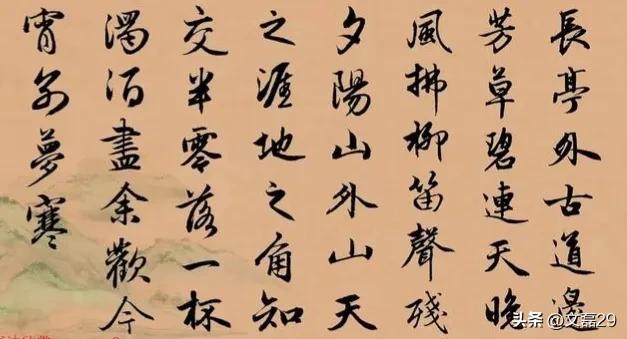 長亭外古道邊
芳草碧連天晚
風拂柳笛聲殘
夕陽山外山天
之涯地之角知
交半零落一杯
濁酒盡余歡今
宵別夢寒
头条 @文磊29